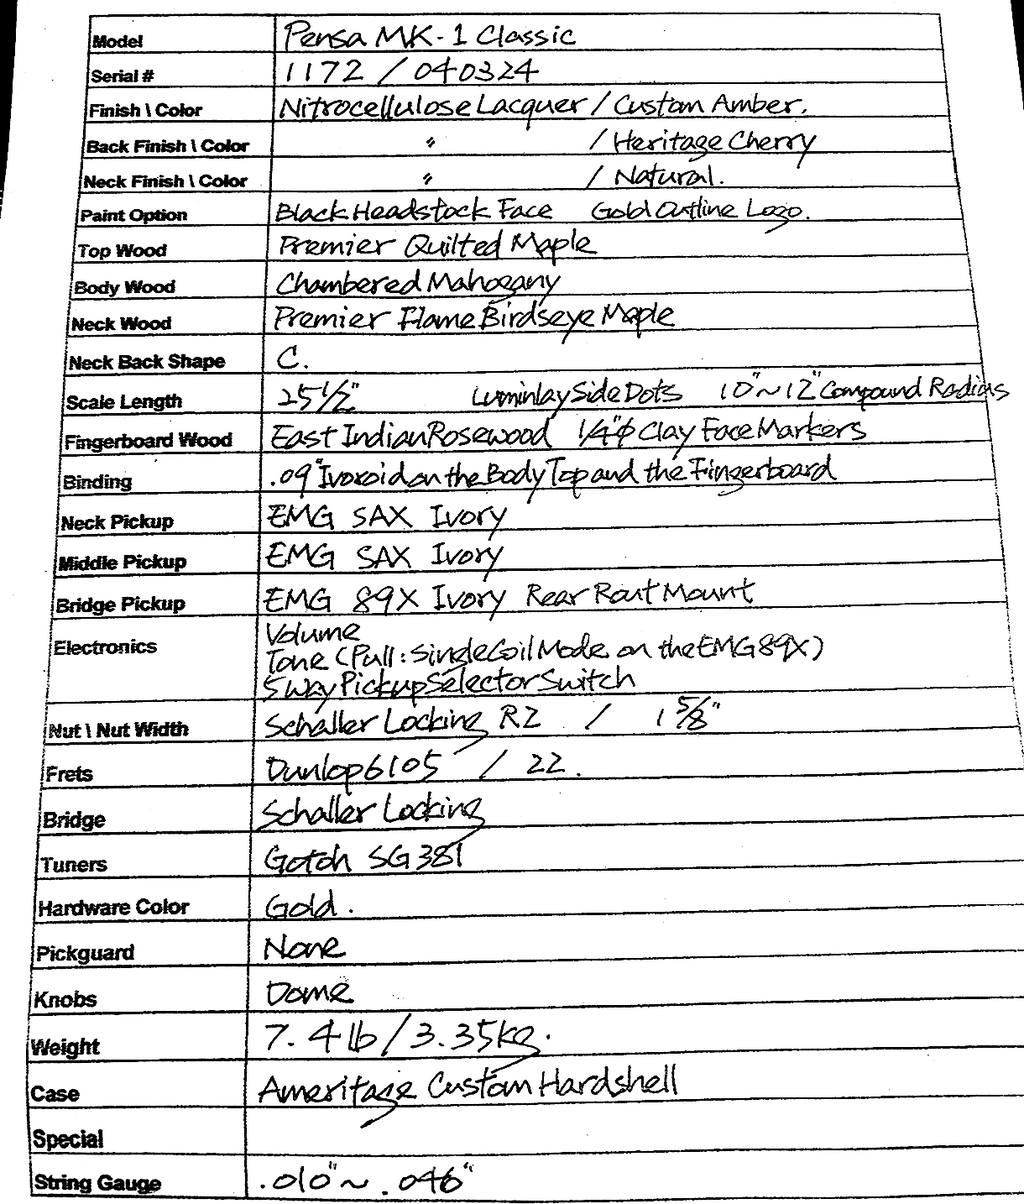 Model Pensa MK-1 Classic
Serial # 1172 / 040324
Finish \ Color Nitrocellulose Lacquer / Custom Amber.
Back Finish \ Color 〃 / Heritage Cherry
Neck Finish \ Color 〃 / Natural.
Paint Option Black Headstock Face Gold Outline Logo.
Top Wood Premier Quilted Maple
Body Wood Chambered Mahogany
Neck Wood Premier Flame Birdseye Maple
Neck Back Shape C.
Scale Length 25 1/2" Luminlay Side Dots 10"~12" Compound Radius
Fingerboard Wood East Indian Rosewood 1/4"φ Clay Face Markers
Binding .09" Ivoroid on the Body Top and the Fingerboard
Neck Pickup EMG SAX Ivory
Middle Pickup EMG SAX Ivory
Bridge Pickup EMG 89X Ivory Rear Rout Mount
Electronics Volume
Tone (Pull: Single Coil Mode on the EMG 89X)
5 Way Pickup Selector Switch
Nut \ Nut Width Schaller Locking R2 / 1 5/8"
Frets Dunlop 6105 / 22.
Bridge Schaller Locking
Tuners Gotoh SG381
Hardware Color Gold.
Pickguard None
Knobs Dome
Weight 7.4 lb / 3.35kg.
Case Ameritage Custom Hardshell
Special
String Gauge .010" ~ .046"